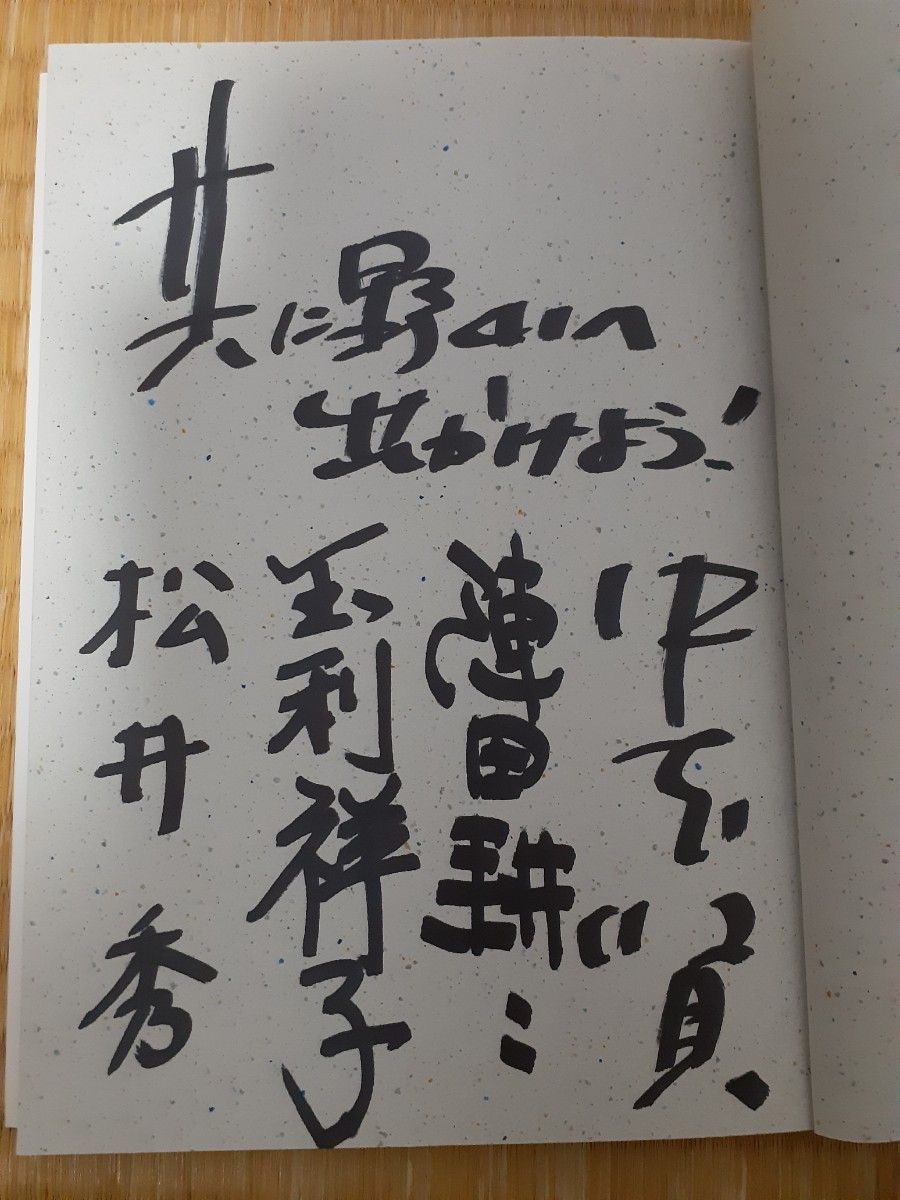 共に野山へ
出かけよう!
田耕二
玉利祥子
松井秀